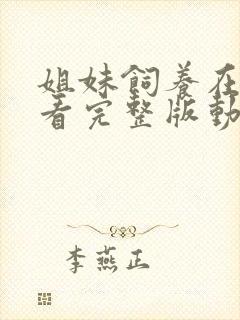 姐妹飼養在
看完整版動
李燕正